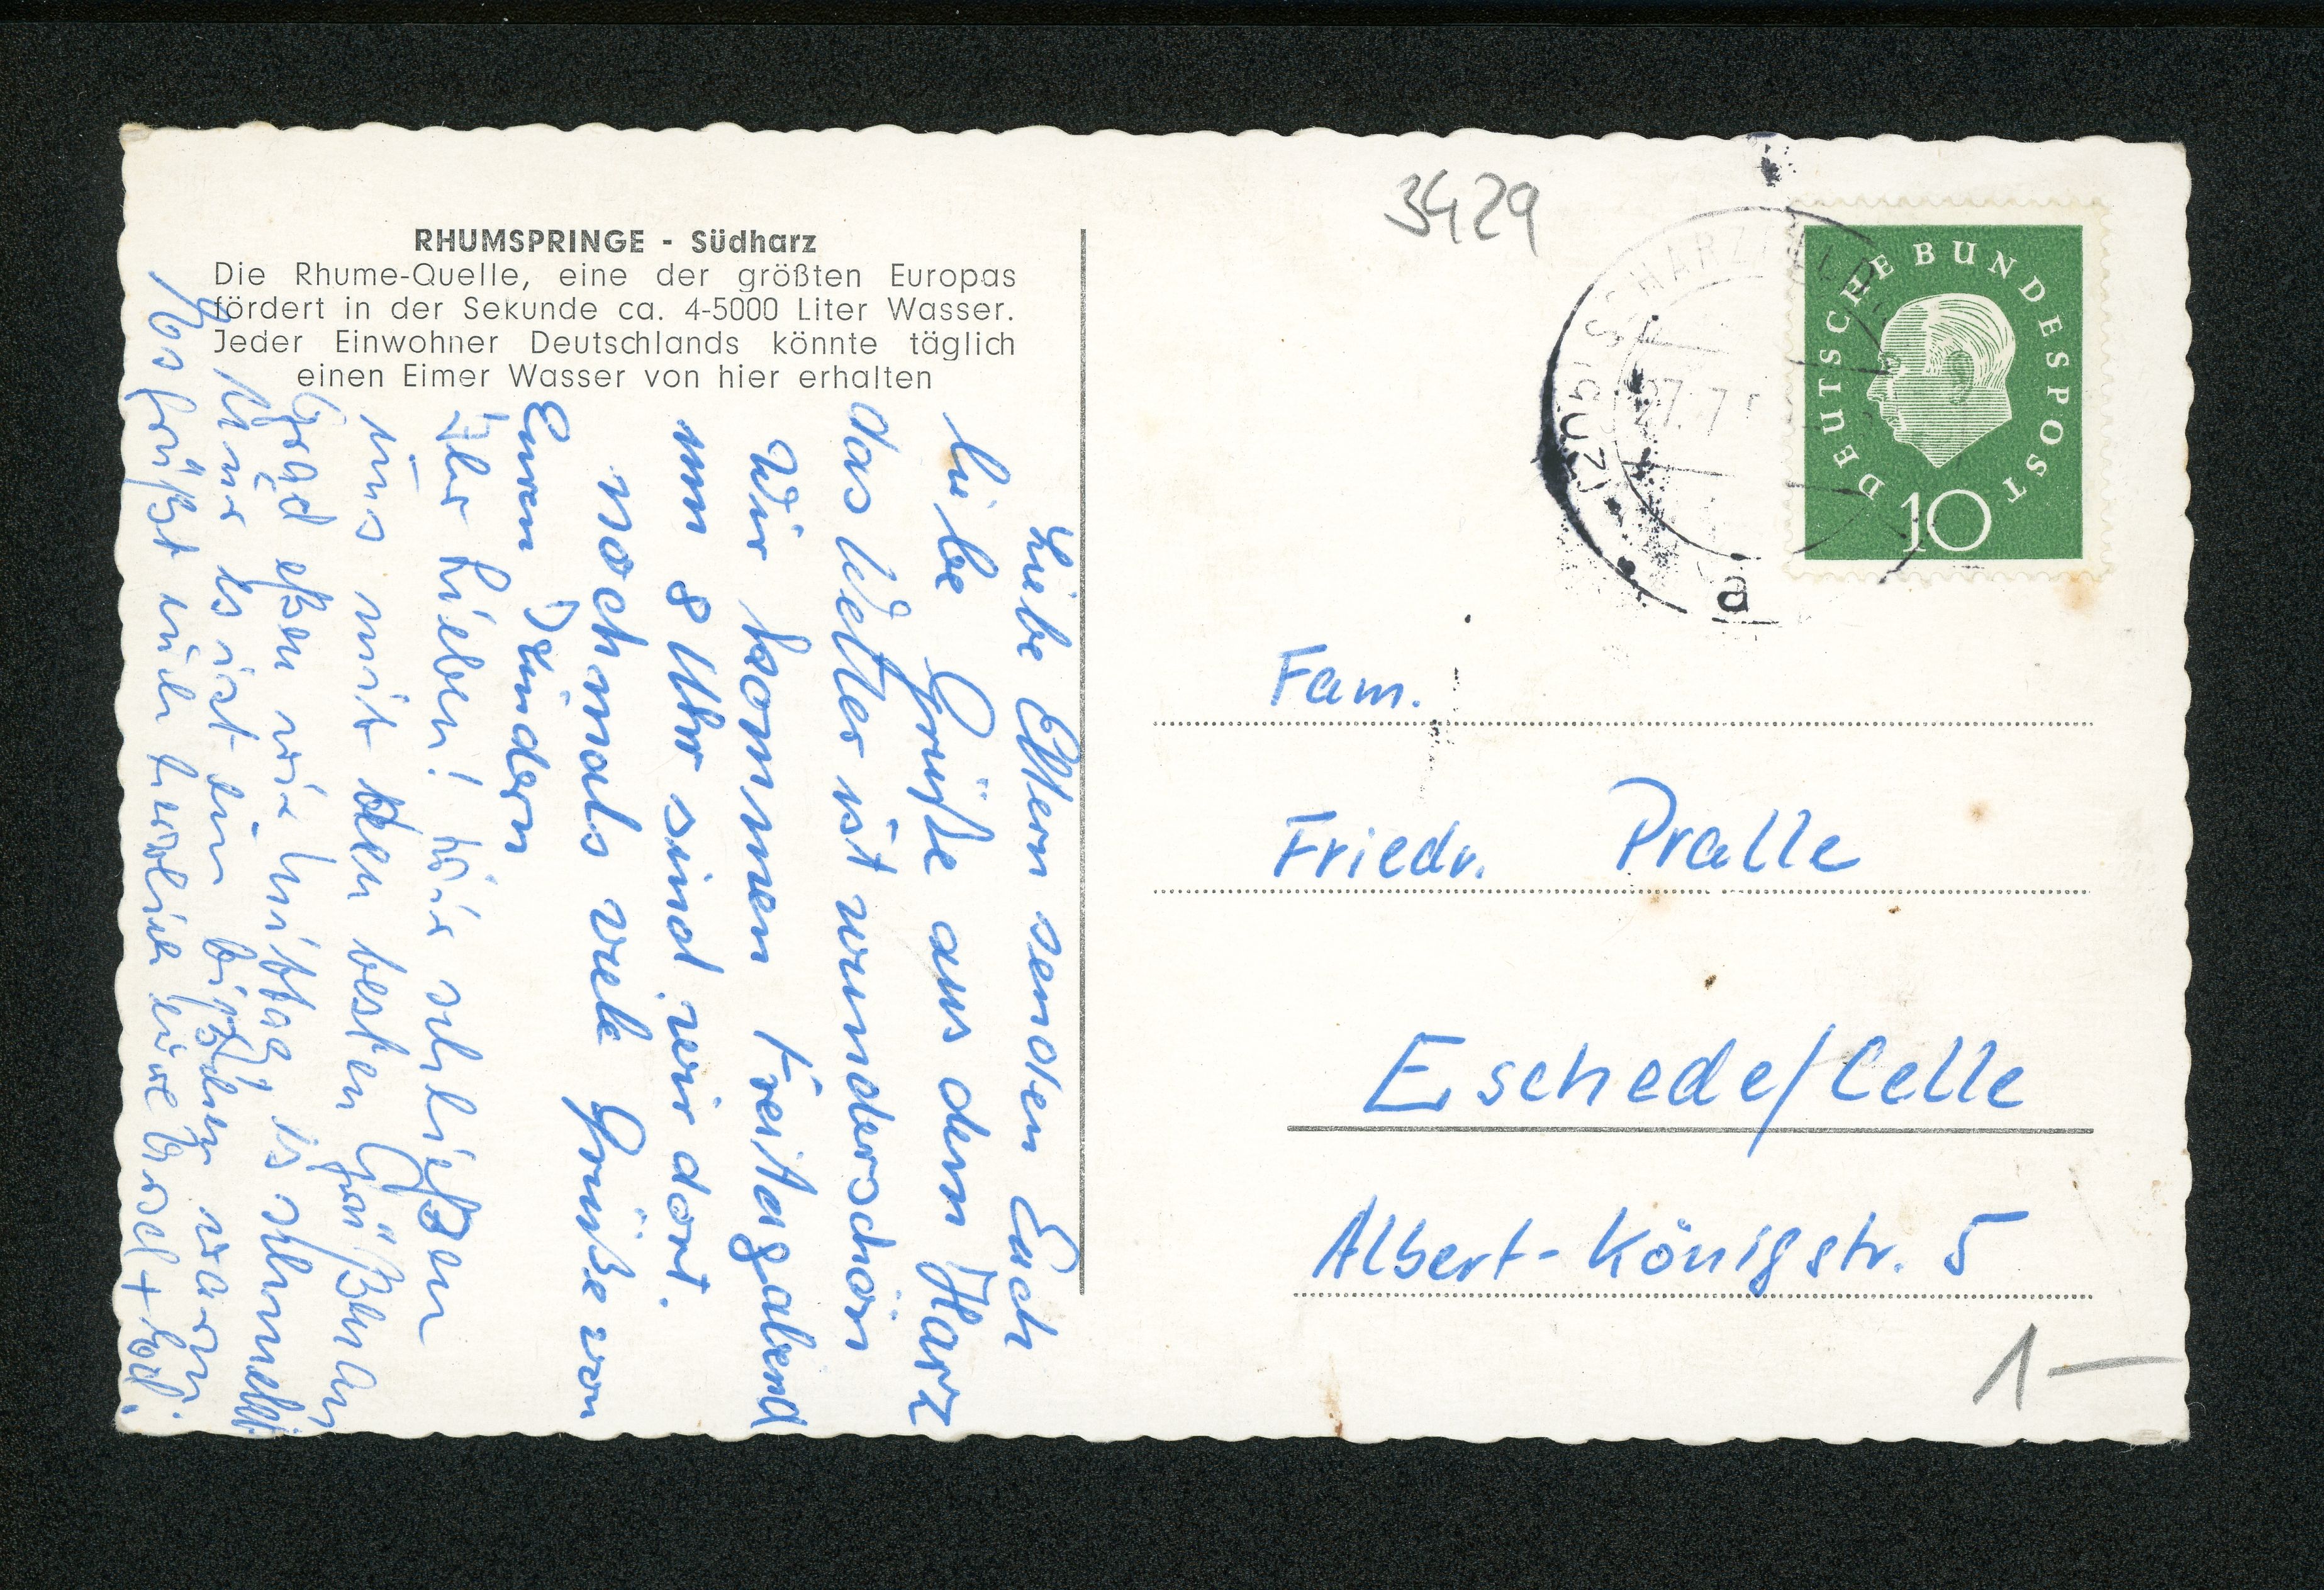 RHUMSPRINGE - Südharz
Die Rhume-Quelle, eine der größten Europas
fördert in der Sekunde ca. 4-5000 Liter Wasser.
Jeder Einwohner Deutschlands könnte täglich
einen Eimer Wasser von hier erhalten
Liebe Eltern senden Euch
liebe Grüße aus dem Harz
das Wetter ist wunderschön
Wir kommen Freitagabend
um 8 Uhr sind wir dort.
nochmals viele Grüße von
Euren Kindern
Ihr Lieben! Wir schließen
uns mit den besten Grüßen an
Grad eßen wir Mittag, es schmeckt.
Nur es ist ein bißchen warm.
Es grüßt euch herzlich eure
3429
SCHARZFELD
27. 7. 5
a
DEUTSCHE BUNDESPOST
10
Fam.
Friedr. Pralle
Eschede/Celle
Albert-Königstr. 5
1 —